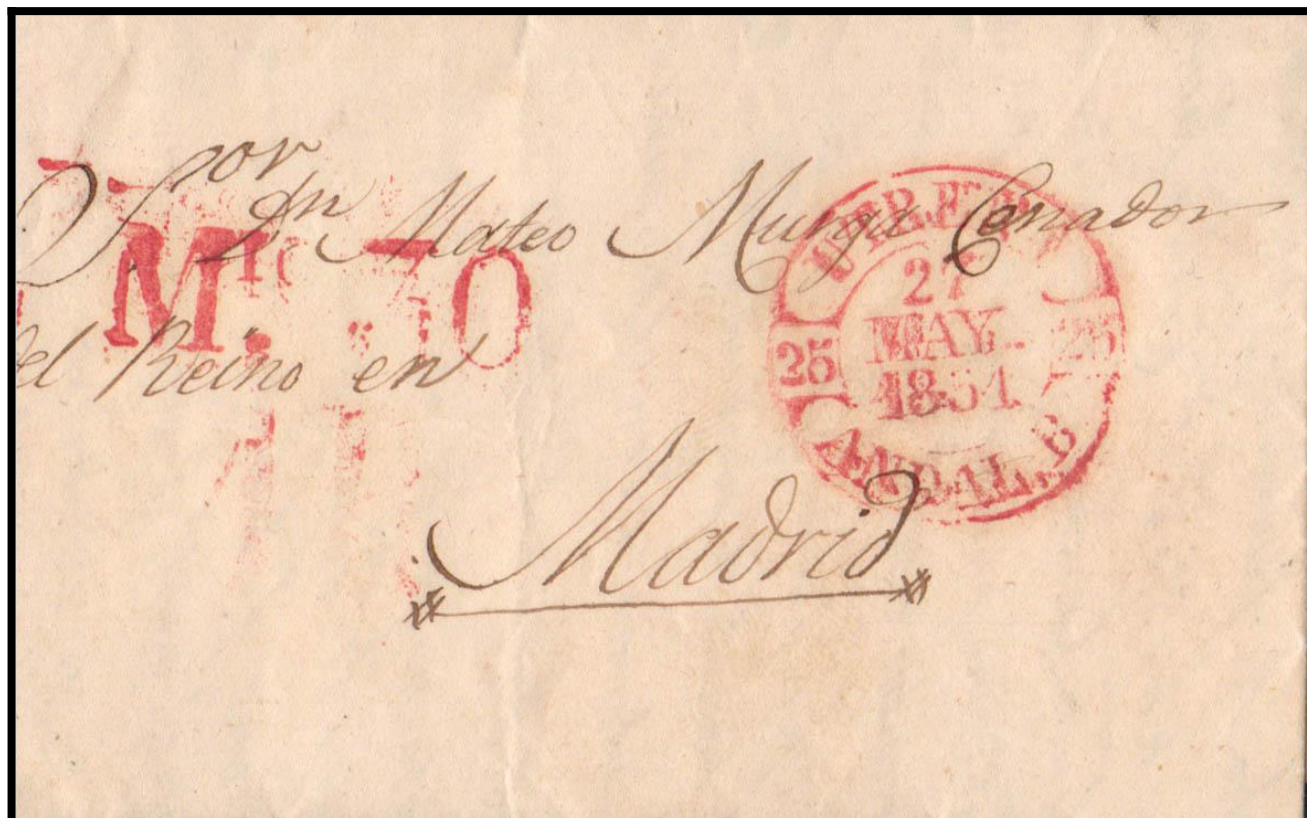 Sor Dn Mateo Murga Cenador
del Reino en
Madrid
M.
UTRERA
27
MAY.
1851
25
25
ANDAL. B